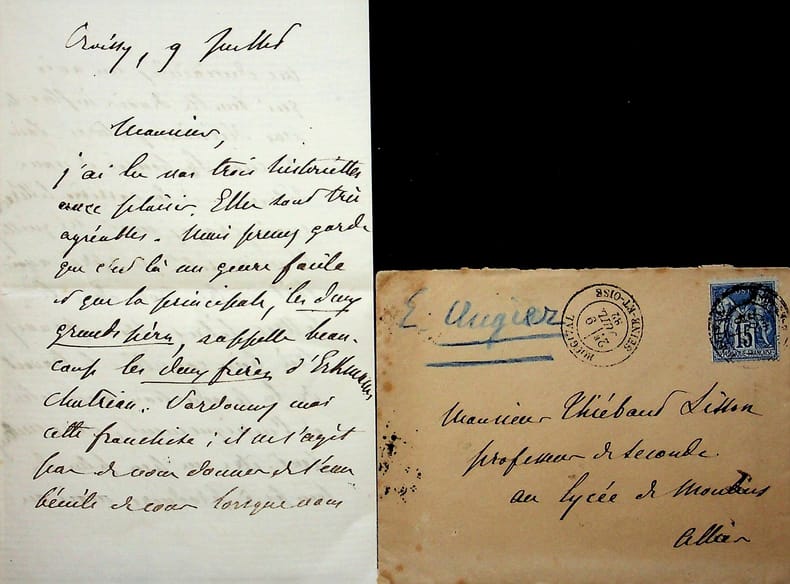 Croissy, 9 Juillet
Monsieur,
j'ai lu vos trois historiettes
avec plaisir. Elles sont très
agréables. Mais prenez garde
que c'est là un genre facile
et que la principale, les deux
grands-pères, rappelle beau-
coup les deux frères d'Erkmann
Chatrian. Pardonnez moi
cette franchise ; il ne s'agit
pas de vous donner de l'eau
bénite de cour lorsque vous
E. Augier
BOUGIVAL
9
JUIL
82
SEINE-ET-OISE
15
Monsieur Thiébaud Sisson
professeur de seconde
au lycée de Moulins
Allier